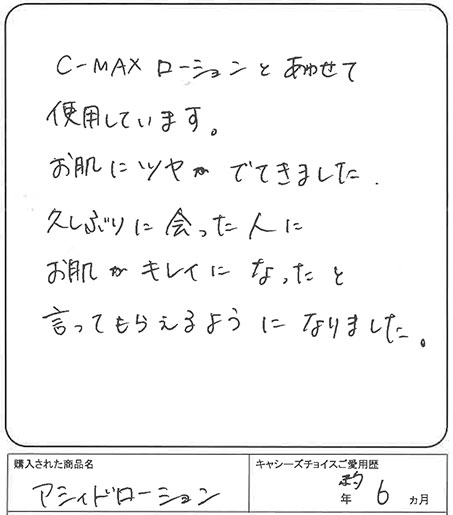 C-MAX ローションとあわせて
使用しています。
お肌にツヤが でてきました.
久しぶりに会った人に
お肌がキレイに なったと
言ってもらえるように なりました。
購入された商品名
アシィドローション
キャシーズチョイスご愛用歴
約
年 6 ヵ月